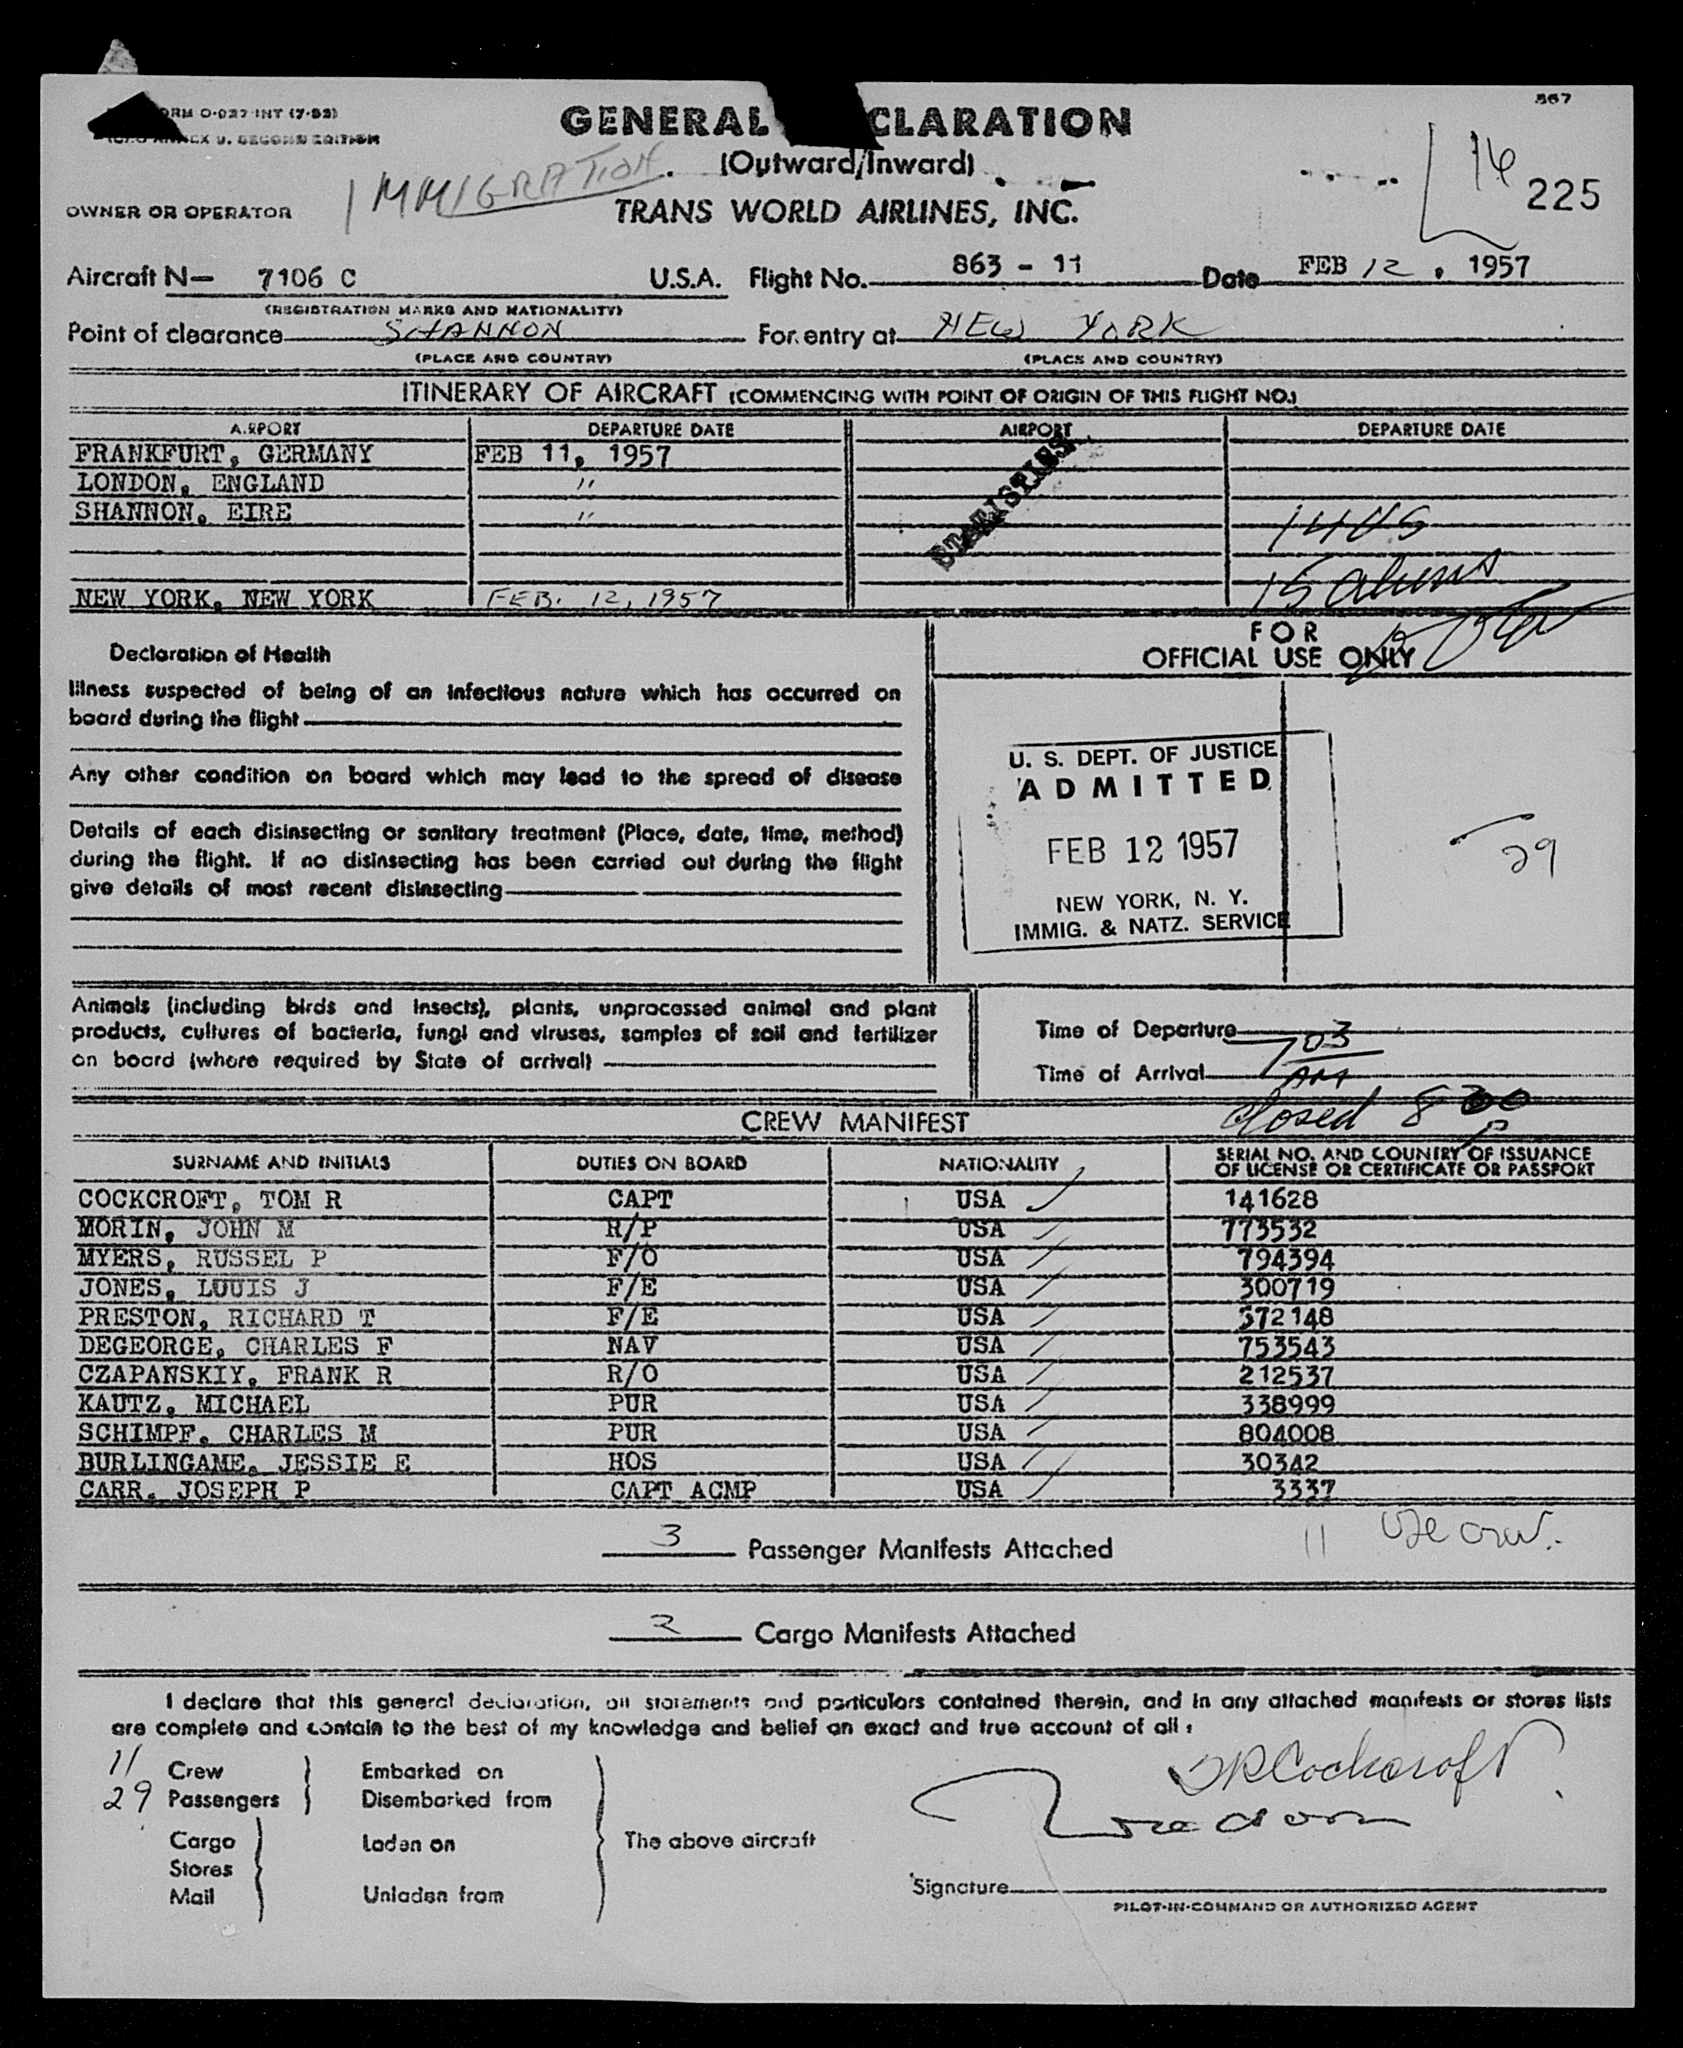 ORM O-027-INT (7-52)
867
GENERAL CLARATION
ANNEX 9, SECOND EDITION
(Outward/Inward)
IMMIGRATION
16
225
OWNER OR OPERATOR
TRANS WORLD AIRLINES, INC.
Aircraft N- 7106 C U.S.A. Flight No. 863 - 11 Date FEB 12, 1957
(REGISTRATION MARKS AND NATIONALITY)
Point of clearance SHANNON For entry at NEW YORK
(PLACE AND COUNTRY) (PLACE AND COUNTRY)
ITINERARY OF AIRCRAFT (COMMENCING WITH POINT OF ORIGIN OF THIS FLIGHT NO.)
AIRPORT DEPARTURE DATE AIRPORT DEPARTURE DATE
FRANKFURT, GERMANY FEB 11, 1957
STATISTICS
LONDON, ENGLAND "
SHANNON, EIRE " 14 US
15 aliens
NEW YORK, NEW YORK FEB. 12, 1957
FOR
OFFICIAL USE ONLY
Declaration of Health
Illness suspected of being of an infectious nature which has occurred on
board during the flight
Any other condition on board which may lead to the spread of disease
Details of each disinsecting or sanitary treatment (Place, date, time, method)
during the flight. If no disinsecting has been carried out during the flight
give details of most recent disinsecting
U. S. DEPT. OF JUSTICE
ADMITTED
FEB 12 1957
NEW YORK, N. Y.
IMMIG. & NATZ. SERVICE
29
Animals (including birds and insects), plants, unprocessed animal and plant
products, cultures of bacteria, fungi and viruses, samples of soil and fertilizer
on board (where required by State of arrival)
Time of Departure
Time of Arrival 703 AM
closed 800
CREW MANIFEST
SURNAME AND INITIALS DUTIES ON BOARD NATIONALITY SERIAL NO. AND COUNTRY OF ISSUANCE
OF LICENSE OR CERTIFICATE OR PASSPORT
COCKCROFT, TOM R CAPT USA 141628
MORIN, JOHN M R/P USA 773532
MYERS, RUSSEL P F/O USA 794394
JONES, LOUIS J F/E USA 300719
PRESTON, RICHARD T F/E USA 372148
DEGEORGE, CHARLES F NAV USA 753543
CZAPANSKIY, FRANK R R/O USA 212537
KAUTZ, MICHAEL PUR USA 338999
SCHIMPF, CHARLES M PUR USA 804008
BURLINGAME, JESSIE E HOS USA 30342
CARR, JOSEPH P CAPT ACMP USA 3337
3 Passenger Manifests Attached
11
2 Cargo Manifests Attached
I declare that this general declaration, all statements and particulars contained therein, and in any attached manifests or stores lists
are complete and contain to the best of my knowledge and belief an exact and true account of all:
11 Crew
29 Passengers
Embarked on
Disembarked from
Cargo
Stores
Mail
Laden on
Unladen from
The above aircraft
TR Cockcroft
Signature
PILOT-IN-COMMAND OR AUTHORIZED AGENT